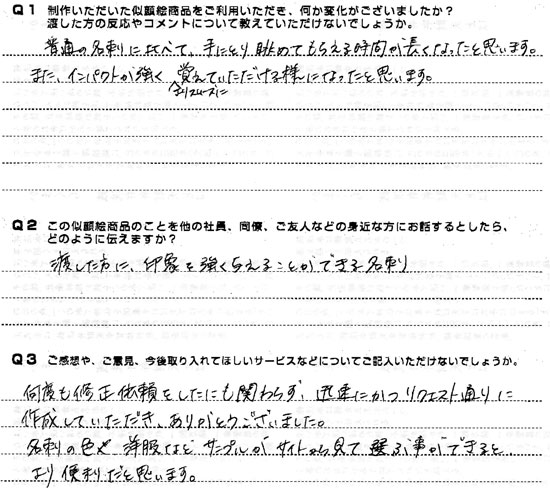 Q1 制作いただいた似顔絵商品をご利用いただき、何か変化がございましたか？
渡した方の反応やコメントについて教えていただけないでしょうか。
普通の名刺に比べて、手にとり眺めてもらえる時間が長くなったと思います。
また、インパクトが強く 覚えていただける様になったと思います。
よりスムーズに
Q2 この似顔絵商品のことを他の社員、同僚、ご友人などの身近な方にお話するとしたら、
どのように伝えますか？
渡した方に、印象を強く与えることができる名刺
Q3 ご感想や、ご意見、今後取り入れてほしいサービスなどについてご記入いただけないでしょうか。
何度も修正依頼をしたにも関わらず、迅速にかつリクエスト通りに
作成していただき、ありがとうございました。
名刺の色や 洋服など サンプルがサイトから見て 選ぶ事ができると
より便利だと思います。